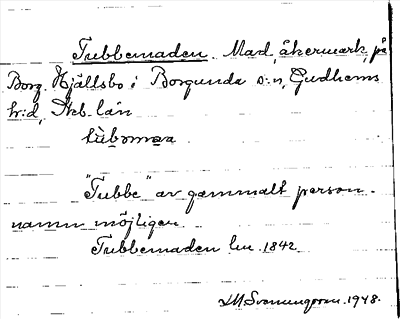 Tubbemaden. Mad, åkermark på
Borg. Hjällsbo i Borgunda s:n, Gudhems
hr:d, Skb. län
tùbomaa
"Tubbe" av gammalt person-
namn möjligen.
Tubbemaden lm. 1842
Svenungsson. 1948.